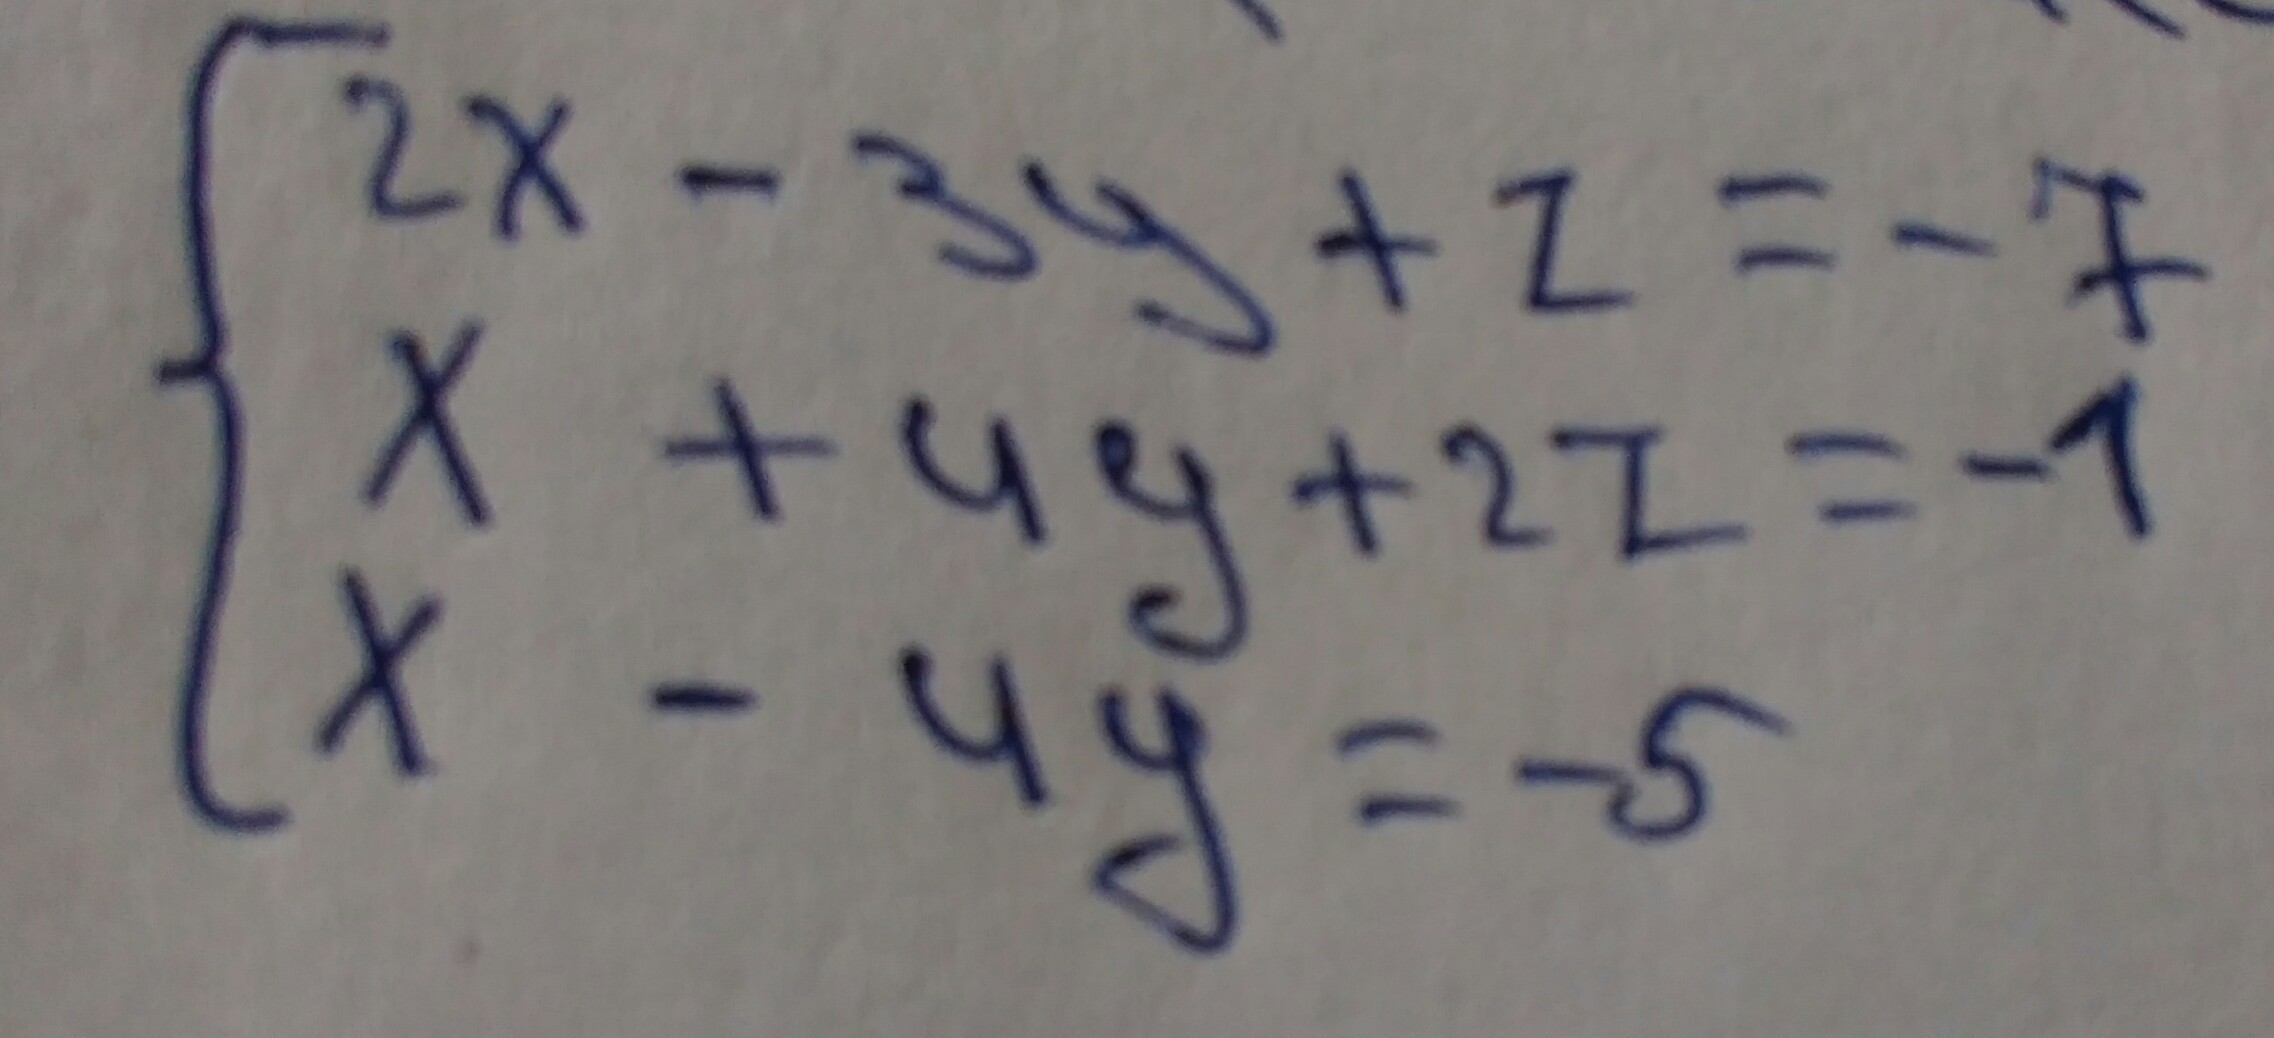 2x - 3y + z = -7
x + 4y + 2z = -1
x - 4y = -5